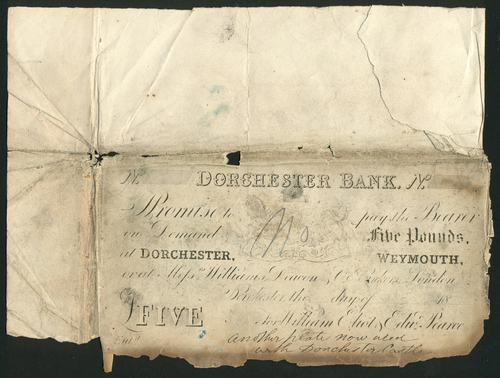 No DORCHESTER BANK. No
I Promise to pay the Bearer
on Demand Five Pounds,
at DORCHESTER, WEYMOUTH,
or at Messrs Williams Deacon & Co. London
Dorchester the day of 18
£FIVE for William Eliot & Edwd. Pearce
Entd.
another plate now used
with Dorchester Castle